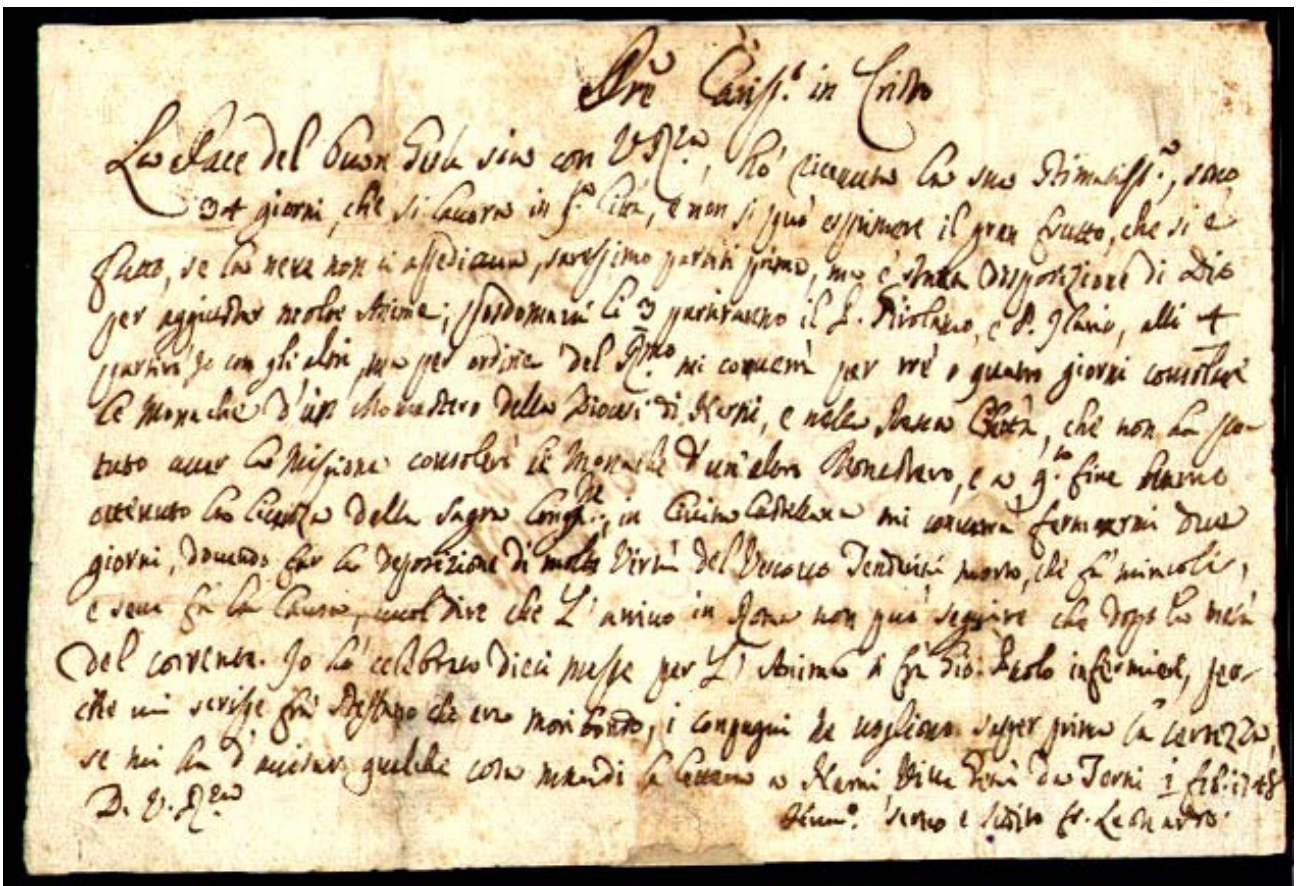 Pre Cariss.o in Cristo
La Pace del buon Gesù sia con V. R.za, hò ricevuta la sua stimatiss.a, sono
34 giorni, che si lavora in q.a Città, e non si può esprimere il gran frutto, che si è
fatto, se la neve non ci assediava, saressimo partiti prima, ma è stata disposizione di Dio
per aggiustar molte Anime; posdomani li 3 partiranno il P. Girolamo, e P. Ilario, alli 4
partirò Io con gli altri, ma per ordine del mi converrà per trè o quatro giorni consolare
le Monache d'un Monastero della Diocesi di Narni, e nella stessa Città, che non ha po-
tuto aver la Missione consolerò le Monache d'un'altro Monastero, e a q.to fine hanno
ottenuto la licenza della Sagra Cong.ne, in Civita Castellana mi converrà fermarmi due
giorni, dovendo far la deposizione di molte Virtù del Vescovo Tenderini morto, che fà miracoli,
e se ne fà la Causa, vuol dire che L'arrivo in Roma non può seguire che dopo la metà
del corrente. Io hò celebrato dieci messe per L'Anima di frà Gio. Paolo infermiere, per-
che mi scrisse frà Steffano che era moribondo, i compagni ne vogliono saper prima la certezza,
se mi ha d'avisar qualche cosa mandi la lettera a Narni Terni 1 feb. 1748
D. V. R.za
servo e suddito fr. Leonardo.